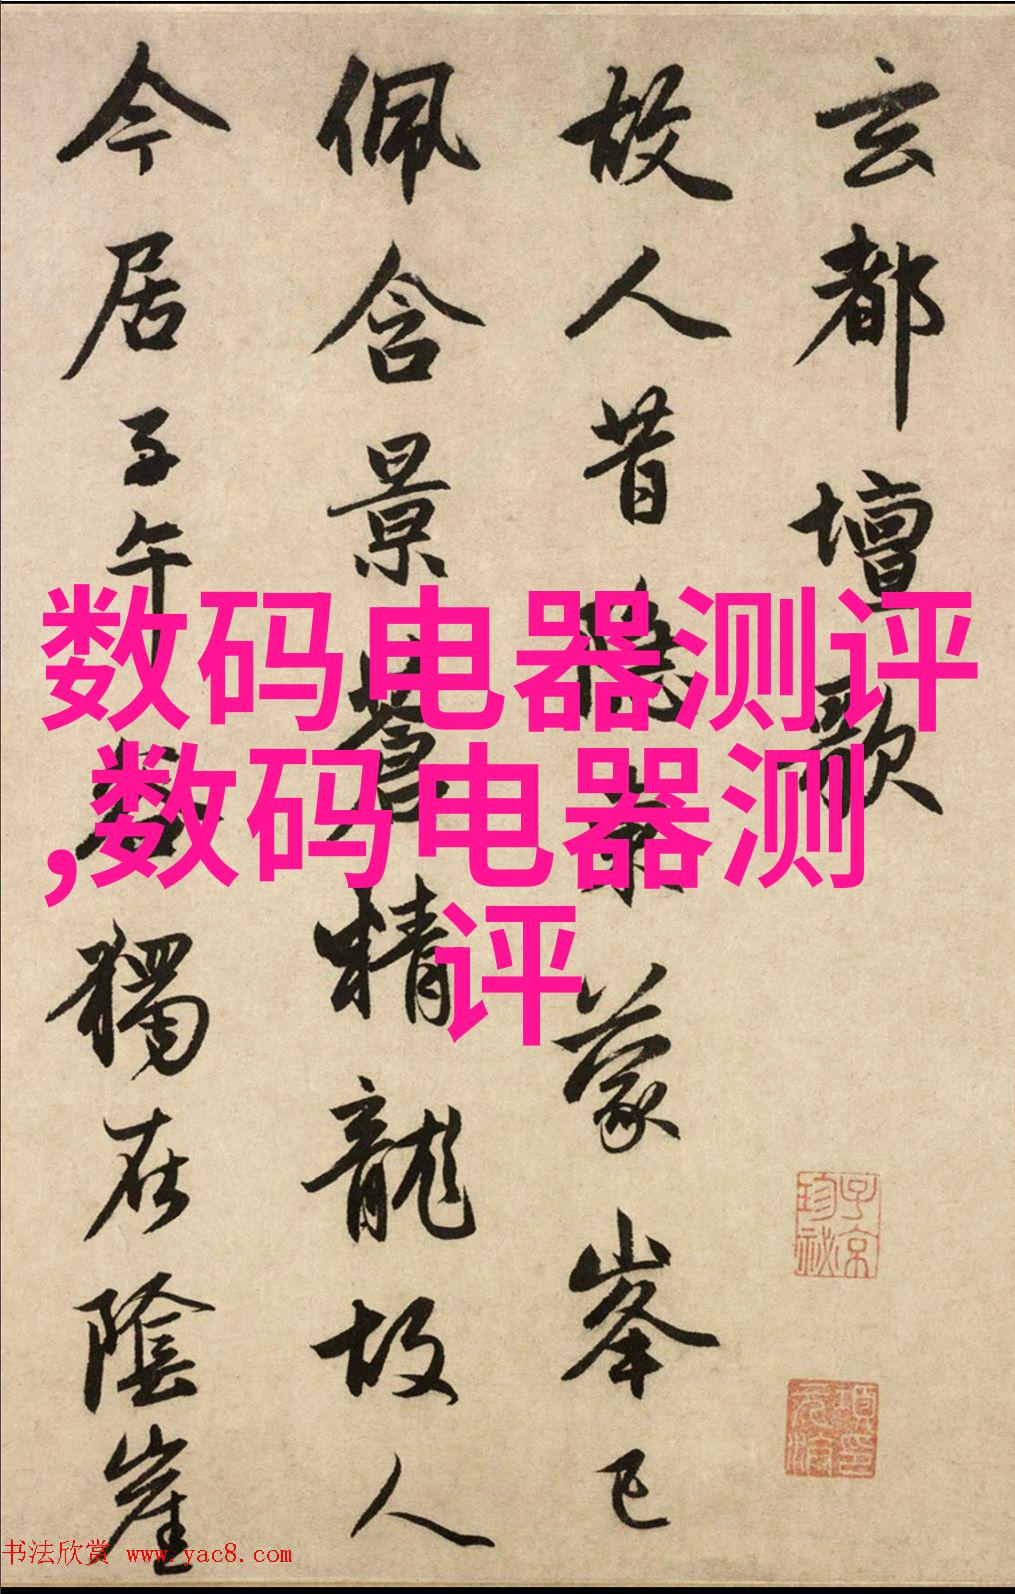 玄都壇歌
故人昔隱東蒙峯已
佩含景蒼精龍故人
今居子午谷獨在陰崖
数码电器测评
,数码电器测
评
子京珍祕
书法欣赏 www.yac8.com